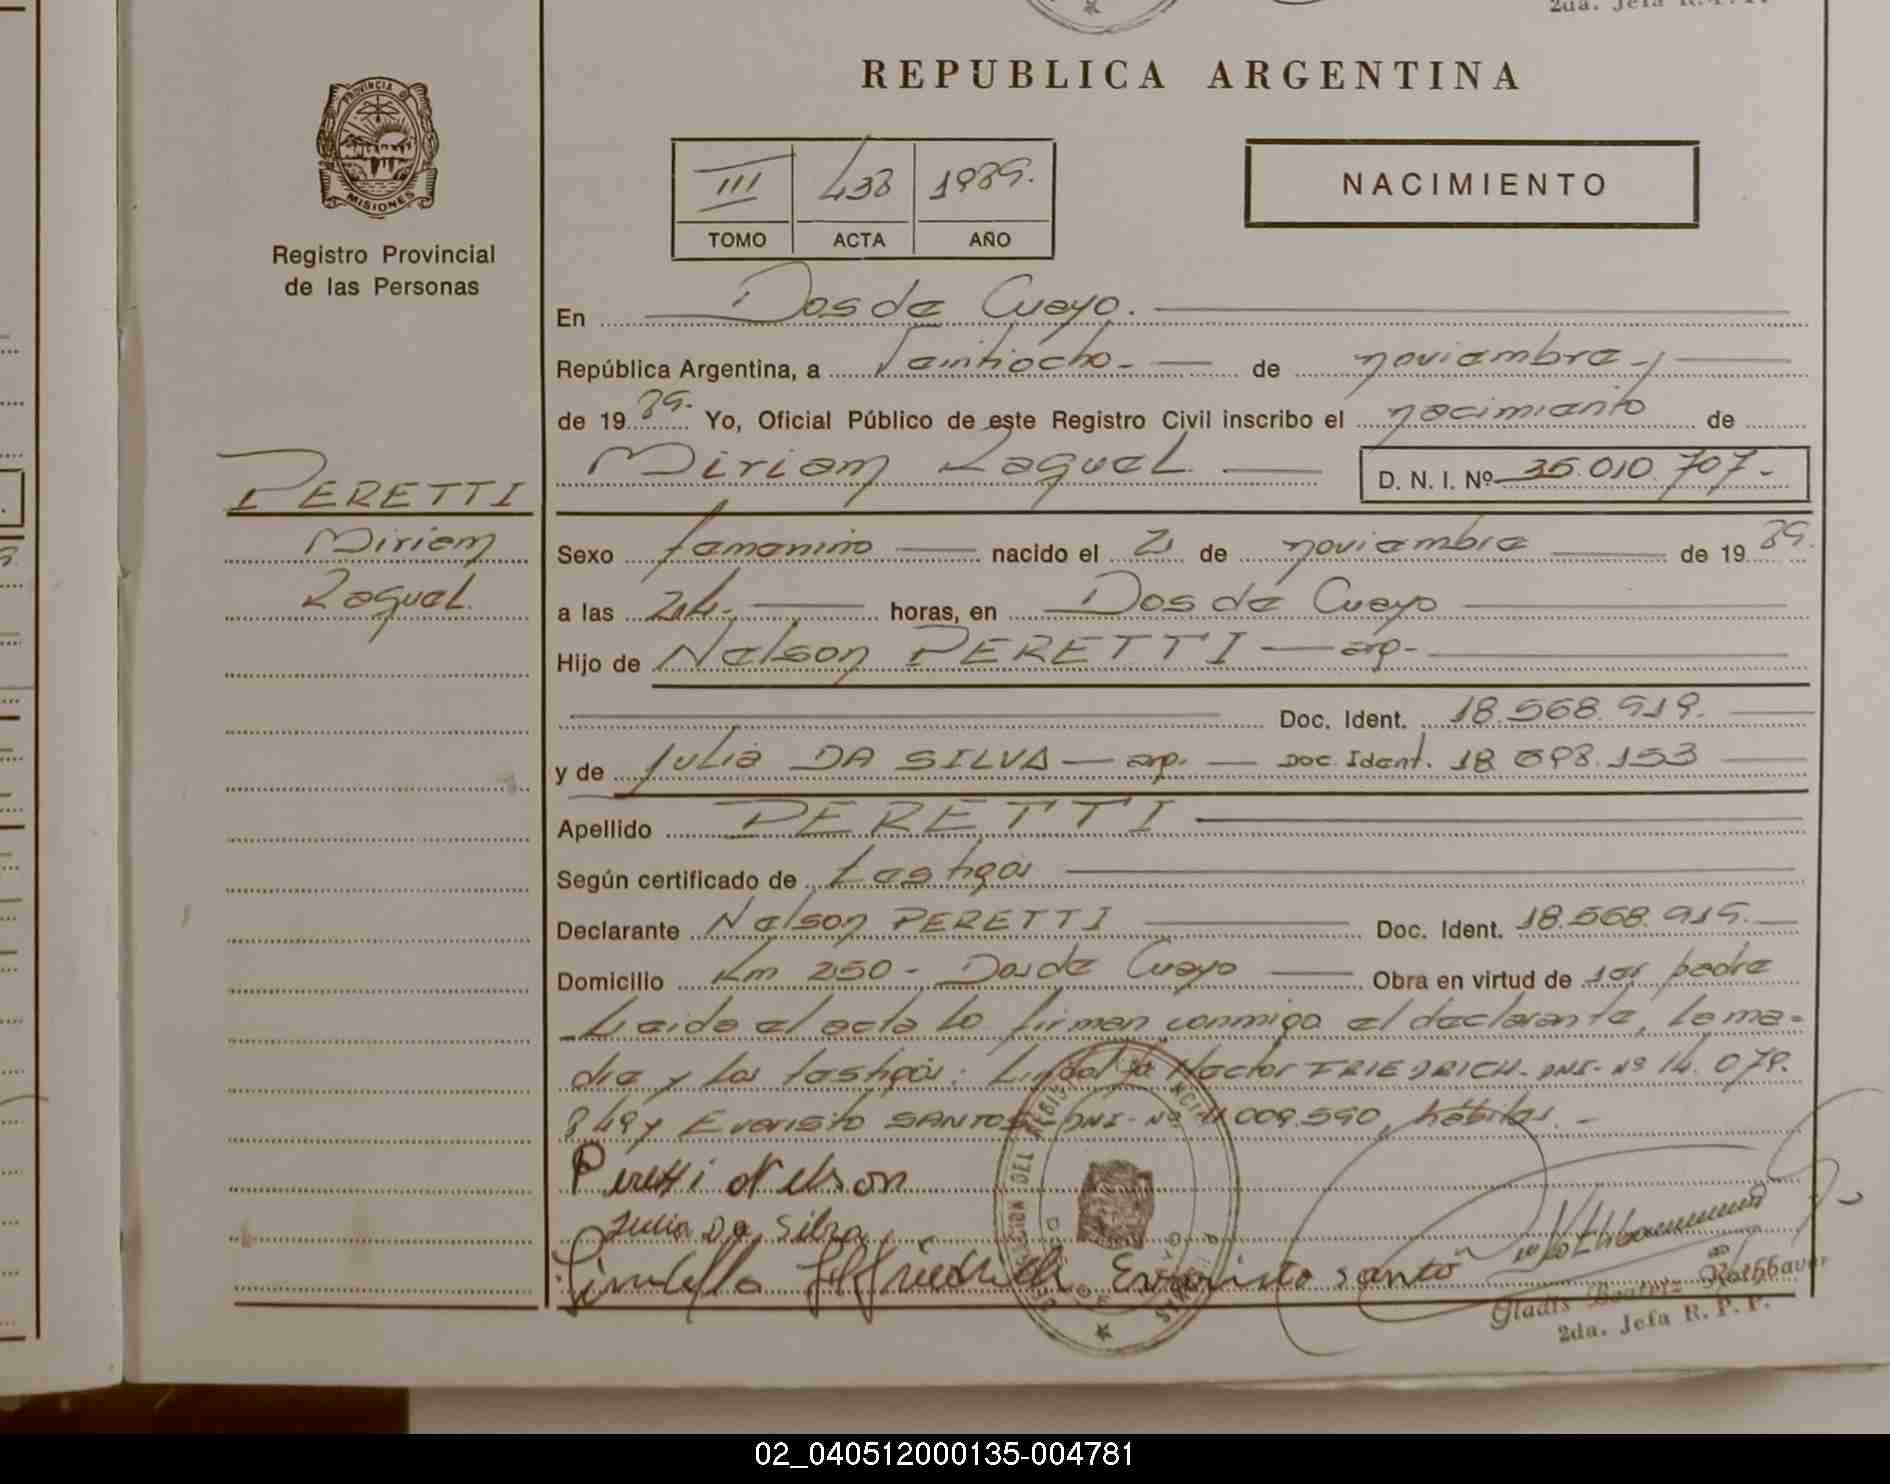 2da. Jefa R. P. P.
REPUBLICA ARGENTINA
PROVINCIA DE
MISIONES
III 438 1989.
TOMO ACTA AÑO
NACIMIENTO
Registro Provincial
de las Personas
En Dos de Mayo.
República Argentina, a Veintiocho- de noviembre,
de 1989.- Yo, Oficial Público de este Registro Civil inscribo el nacimiento de
Miriam Raquel. D. N. I. Nº 35.010.707.-
PERETTI
Miriam
Raquel.
Sexo femenino nacido el 21 de noviembre de 1989.
a las 24.- horas, en Dos de Mayo
Hijo de Nelson PERETTI — arg.-
Doc. Ident. 18.568.919.
y de Julia DA SILVA — arg. — Doc. Ident. 18.698.153
Apellido PERETTI
Según certificado de testigos
Declarante Nelson PERETTI Doc. Ident. 18.568.919.
Domicilio Km 250 - Dos de Mayo Obra en virtud de ser padre
Leida el acta la firman conmigo el declarante, la ma=
dre y los testigos: Hector FRIEDRICH- DNI- Nº 14.078.
849 y Evaristo SANTOS DNI- Nº 11.009.590, hábiles.-
Peretti Nelson
Julia Da Silva
Friedrich Evaristo santo
Gladis Beatriz Rothbauer
2da. Jefa R. P. P.
02_040512000135-004781